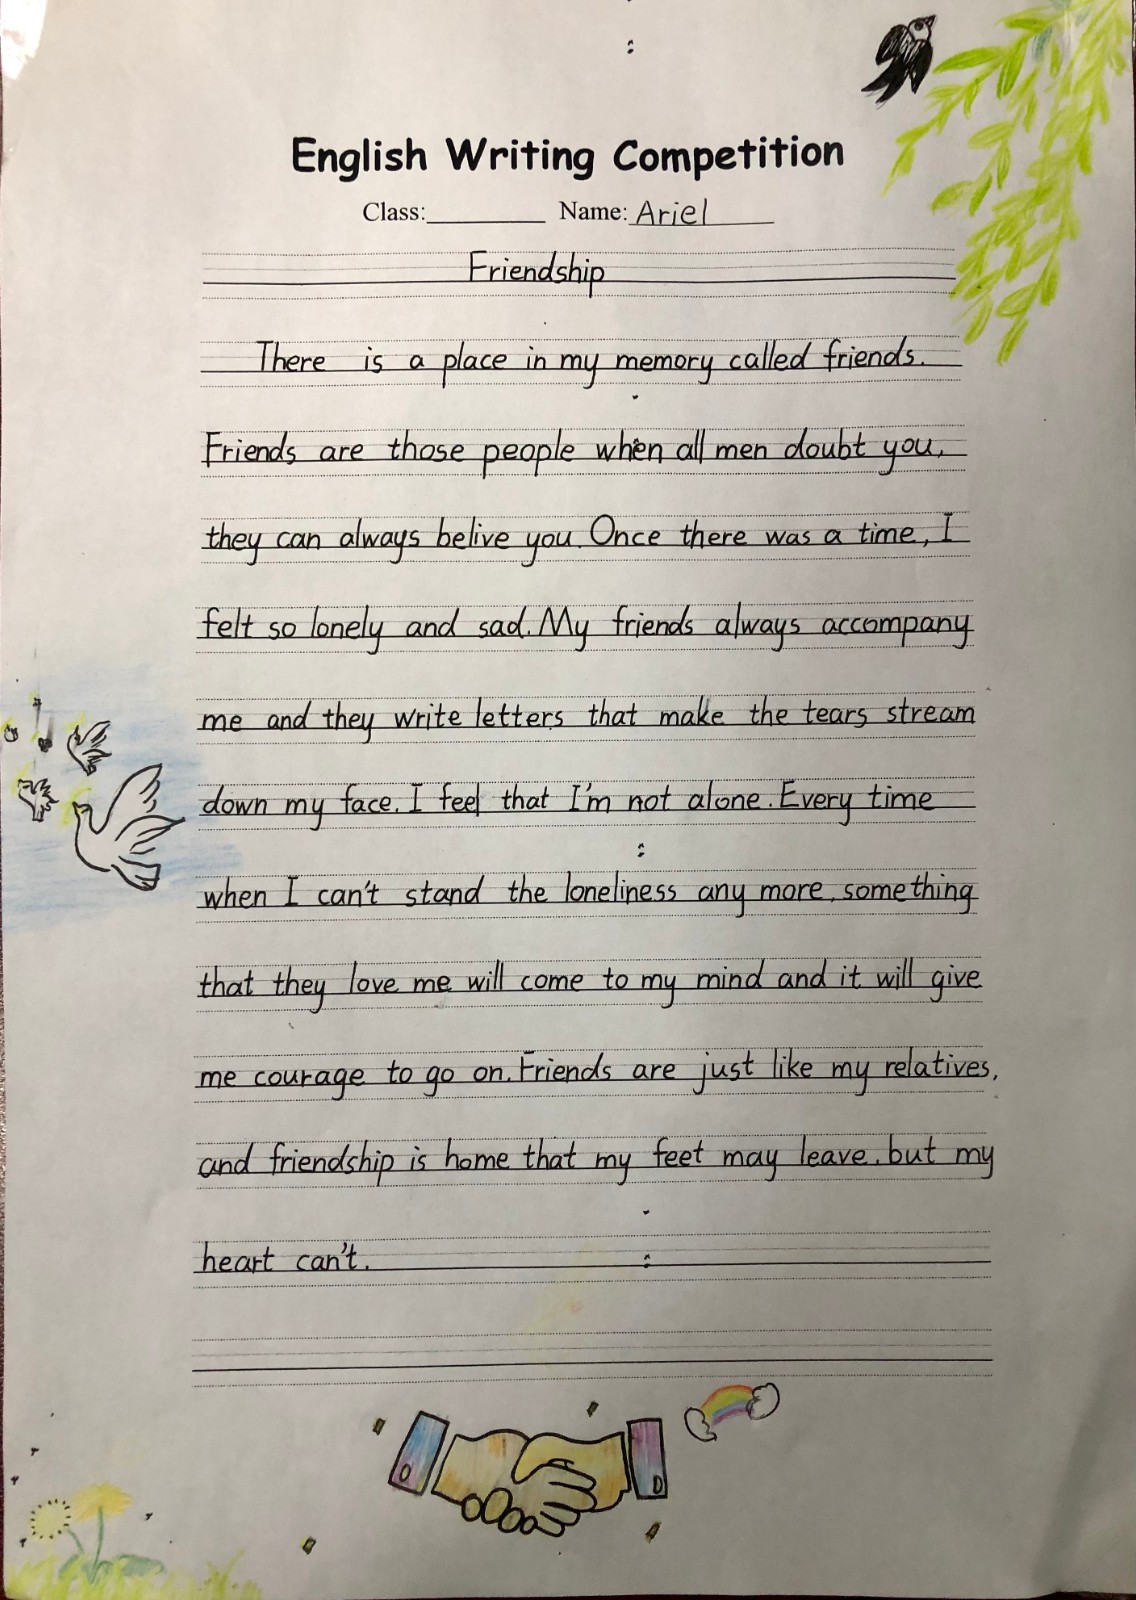 English Writing Competition
Class:__________ Name: Ariel
Friendship
There is a place in my memory called friends.
Friends are those people when all men doubt you,
they can always belive you. Once there was a time, I
felt so lonely and sad. My friends always accompany
me and they write letters that make the tears stream
down my face. I feel that I'm not alone. Every time
when I can't stand the loneliness any more, something
that they love me will come to my mind and it will give
me courage to go on. Friends are just like my relatives,
and friendship is home that my feet may leave, but my
heart can't.